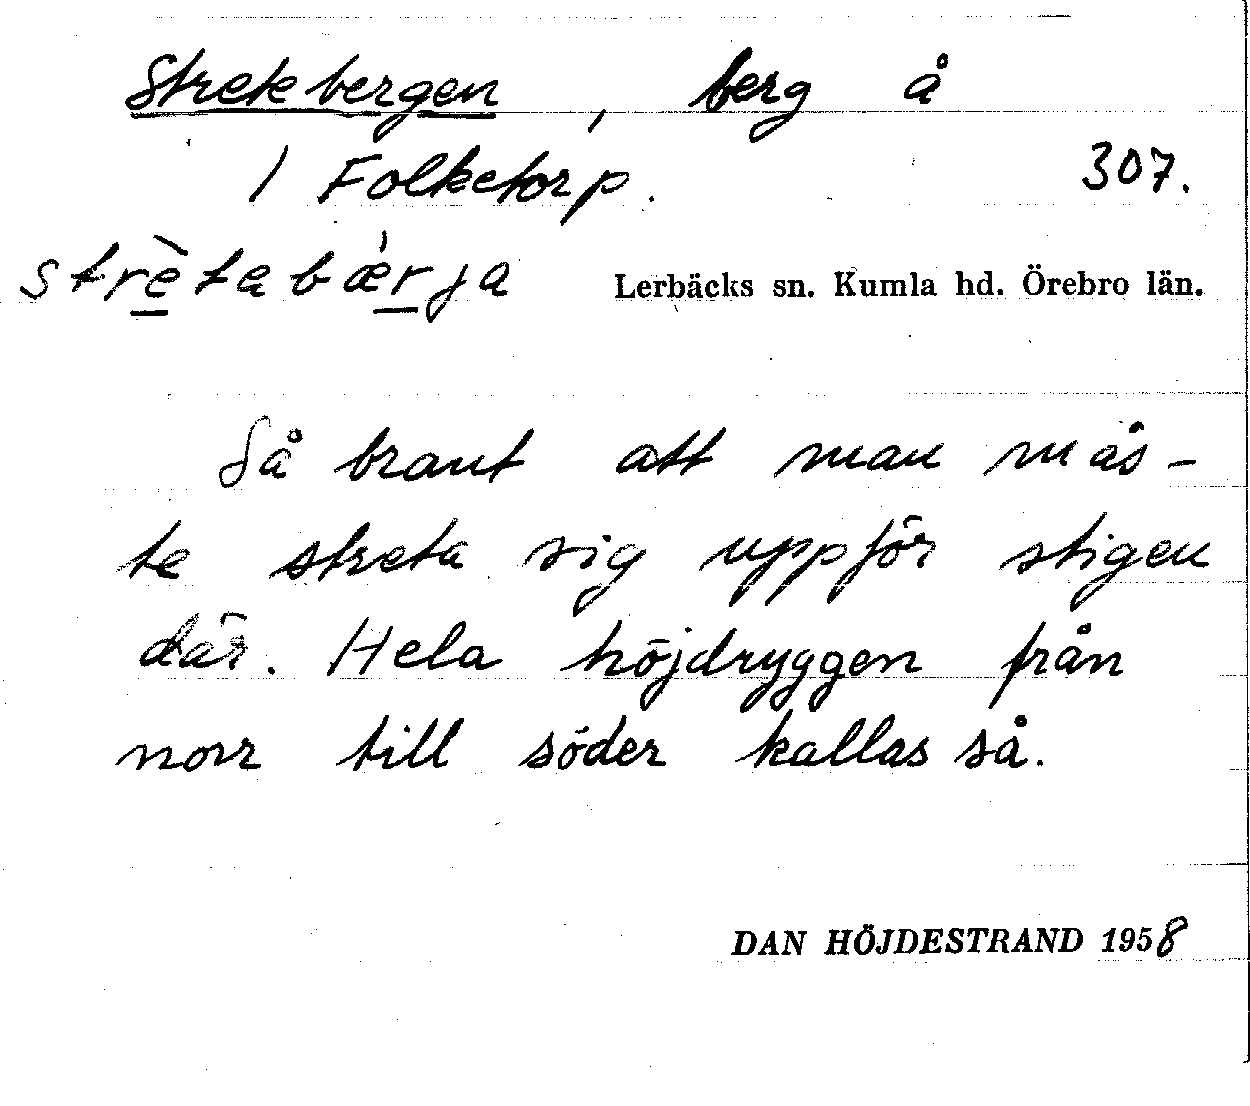 Stretebergen, berg å
1 Folketorp. 307.
strètabǽrja Lerbäcks sn. Kumla hd. Örebro län.
Så brant att man mås-
te streta sig uppför stigen
där. Hela höjdryggen från
norr till söder kallas så.
DAN HÖJDESTRAND 1958